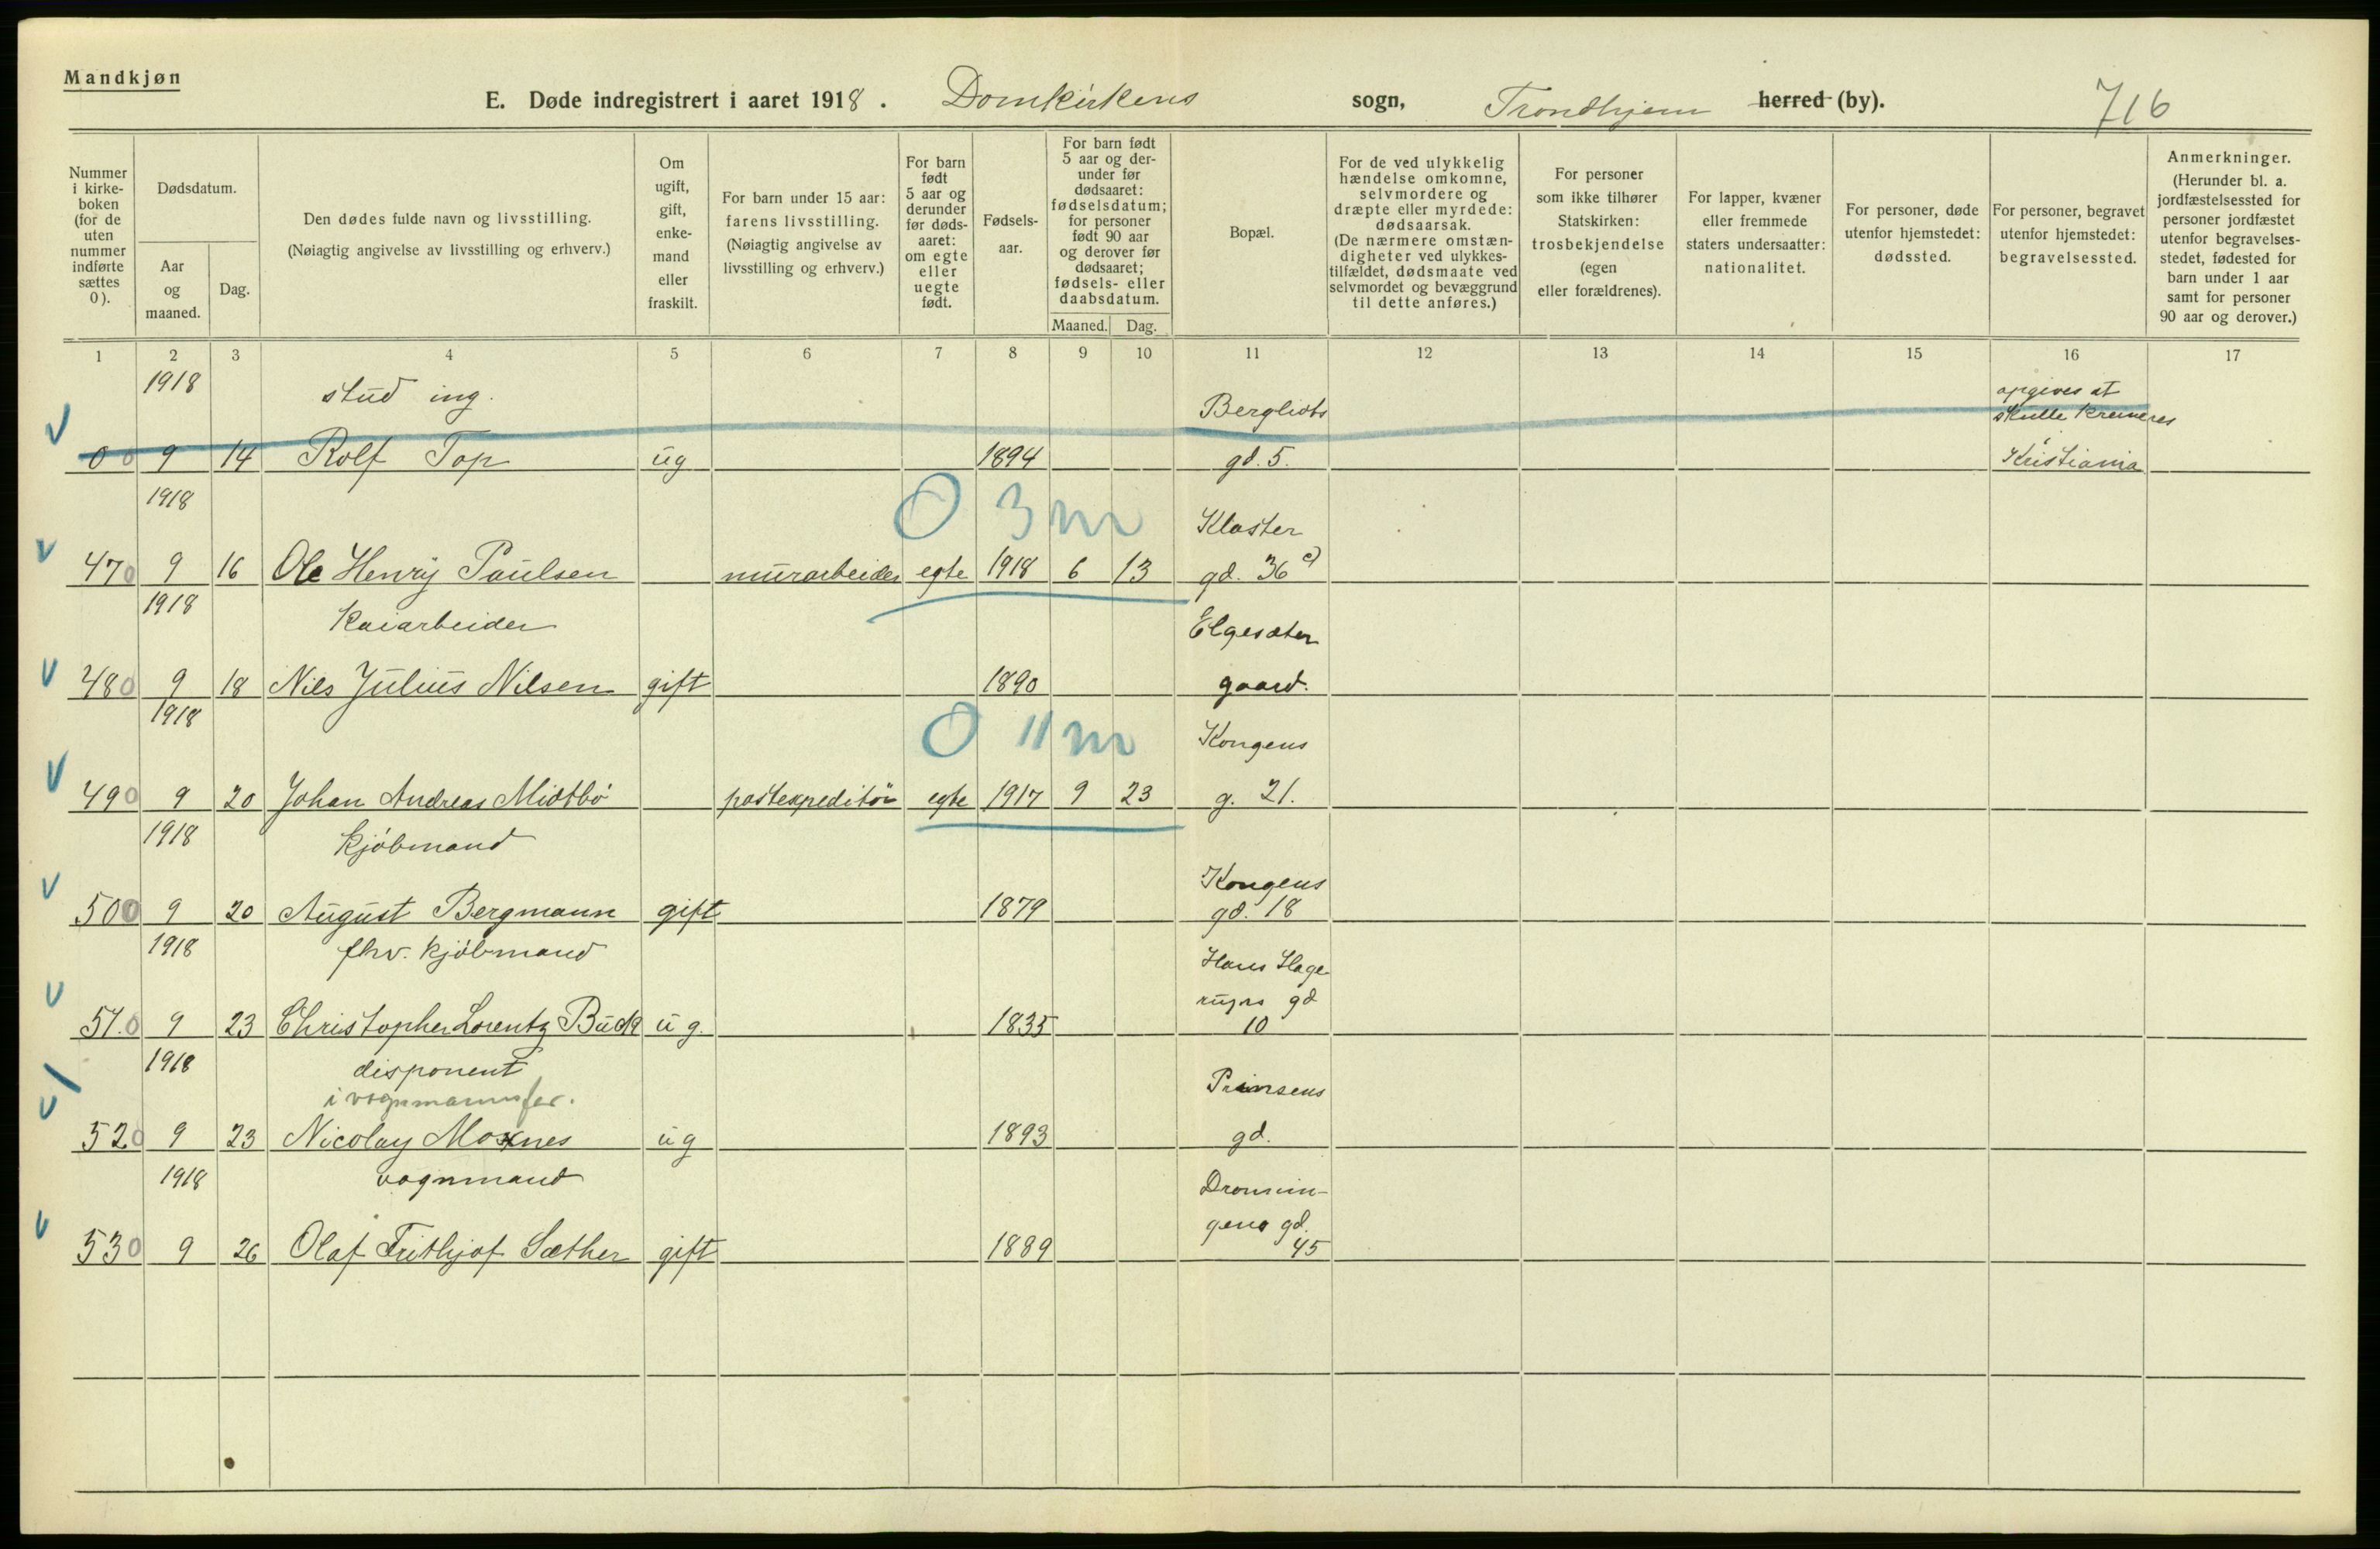 Mandkjøn
E. Døde indregistrert i aaret 1918. Domkirkens sogn, Trondhjem herred (by). 716
Nummer i kirkeboken (for de uten nummer indførte sættes 0).
Dødsdatum.
Aar og maaned.
Dag.
Den dødes fulde navn og livsstilling.
(Nøiagtig angivelse av livsstilling og erhverv.)
Om ugift, gift, enkemand eller fraskilt.
For barn under 15 aar: farens livsstilling. (Nøiagtig angivelse av livsstilling og erhverv.)
For barn født 5 aar og derunder før dødsaaret: om egte eller uegte født.
Fødselsaar.
For barn født 5 aar og derunder før dødsaaret: fødselsdatum; for personer født 90 aar og derover før dødsaaret; fødsels- eller daabsdatum.
Maaned. Dag.
Bopæl.
For de ved ulykkelig hændelse omkomne, selvmordere og dræpte eller myrdede: dødsaarsak. (De nærmere omstændigheter ved ulykkestilfældet, dødsmaate ved selvmordet og bevæggrund til dette anføres.)
For personer som ikke tilhører Statskirken: trosbekjendelse (egen eller forældrenes).
For lapper, kvæner eller fremmede staters undersaatter: nationalitet.
For personer, døde utenfor hjemstedet: dødssted.
For personer, begravet utenfor hjemstedet: begravelsessted.
Anmerkninger. (Herunder bl. a. jordfæstelsessted for personer jordfæstet utenfor begravelsesstedet, fødested for barn under 1 aar samt for personer 90 aar og derover.)
1 2 3 4 5 6 7 8 9 10 11 12 13 14 15 16 17
1918 stud ing. Bergliots opgives at skulle kremeres
0 0 9 14 Rolf Top ug 1894 gd. 5. Kristiania
1918 0 3 m Kloster
47 0 9 16 Ole Henry Paulsen murarbeider egte 1918 6 13 gd. 36 c)
1918 Kaiarbeider Elgesæter
48 0 9 18 Nils Julius Nilsen gift 1890 gaard.
1918 0 11 m Kongens
49 0 9 20 Johan Andreas Midtbö postexpeditör egte 1917 9 23 g. 21.
1918 Kjöbmand Kongens
50 0 9 20 August Bergmann gift 1879 gd. 18
1918 fhv. kjöbmand Hans Hage-
rups gd
51. 0 9 23 Christopher Lorentz Buck ug. 1835 10
1918 disponent Prinsens
i vognmannsfor.
52 0 9 23 Nicolay Moxnes ug 1893 gd.
1918 vognmand Dronnin-
gens gd.
53 0 9 26 Olaf Frithjof Sæther gift 1889 45